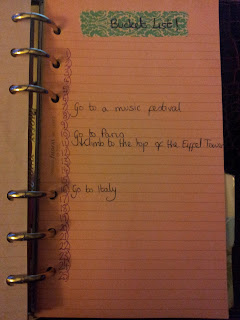 Bucket List!
Go to a music festival
Go to Paris
Climb to the top of the Eiffel Tower
Go to Italy